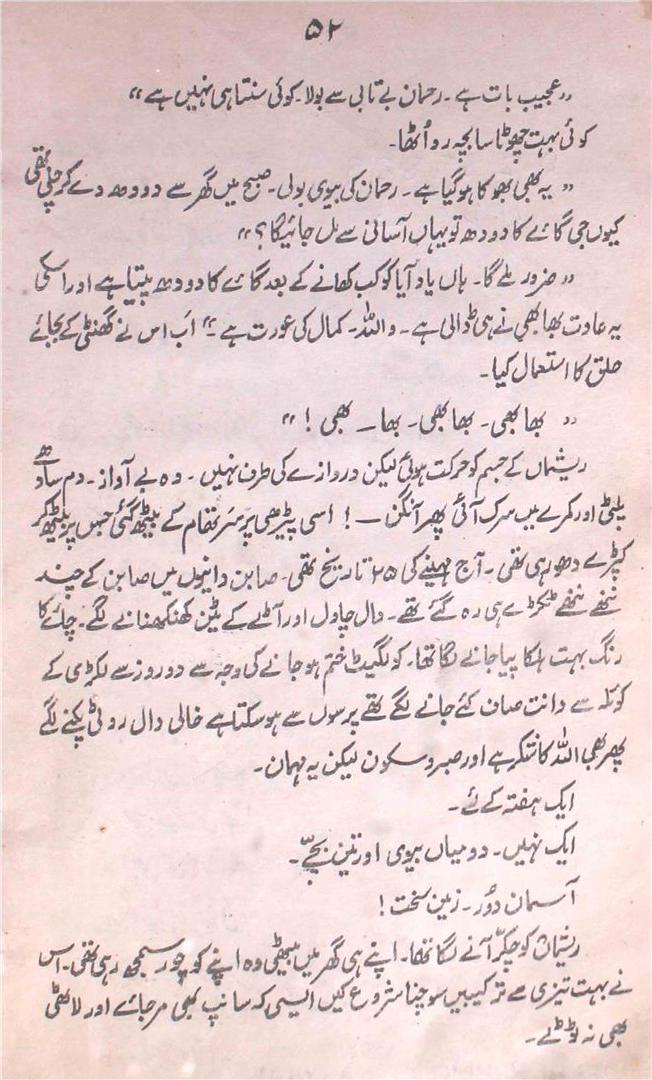 ۵۲
”عجیب بات ہے۔ رحمان بے تابی سے بولا۔ کوئی سنتا ہی نہیں ہے“
کوئی بہت چھوٹا سا بچہ رو اُٹھا۔
”یہ بھی بھوکا ہوگیا ہے۔ رحمان کی بیوی بولی۔ صبح میں گھر سے دودھ دے کر چلی تھی
کیوں جی گائے کا دودھ تو یہاں آسانی سے مل جائیگا؟“
”ضرور ملے گا۔ ہاں یاد آیا کوکب کھانے کے بعد گائے کا دودھ پیتا ہے اور اسکی
یہ عادت بھابھی نے ہی ڈالی ہے۔ واللہ۔ کمال کی عورت ہے۔“ اَب اس نے گھنٹی کے بجائے
حلق کا استعمال کیا۔
”بھابھی۔ بھابھی۔ بھا۔ بھی!“
ریشماں کے جسم کو حرکت ہوئی لیکن دروازے کی طرف نہیں۔ وہ بے آواز۔ دم سادھے
پلٹی اور کمرے میں سرک آئی پھر آنگن — ! اسی پیڑھی پر سَر تھام کے بیٹھ گئی جس پر بیٹھ کر
کپڑے دھو رہی تھی۔ آج مہینے کی ۲۵ تاریخ تھی۔ صابن دانیوں میں صابن کے چند
ننھے ننھے ٹکڑے ہی رہ گئے تھے۔ دال چاول اور آٹے کے ٹین کھنکھنانے لگے۔ چائے کا
رنگ بہت ہلکا پیا جانے لگا تھا۔ کولگیٹ ختم ہو جانے کی وجہ سے دو روز سے لکڑی کے
کوئلہ سے دانت صاف کئے جانے لگے تھے پرسوں سے ہوسکتا ہے خالی دال روٹی پکنے لگے
پھر بھی اللہ کا شکر ہے اور صبر و سکون لیکن یہ مہمان۔
ایک ہفتہ کے لئے۔
ایک نہیں۔ دو میاں بیوی اور تین بچّے۔
آسمان دُور۔ زمین سخت!
ریشماں کو چکّر آنے لگا تھا۔ اپنے ہی گھر میں بیٹھی وہ اپنے کو چور سمجھ رہی تھی۔ اس
نے بہت تیزی سے ترکیبیں سوچنا شروع کیں ایسی کہ سانپ بھی مر جائے اور لاٹھی
بھی نہ ٹوٹے۔